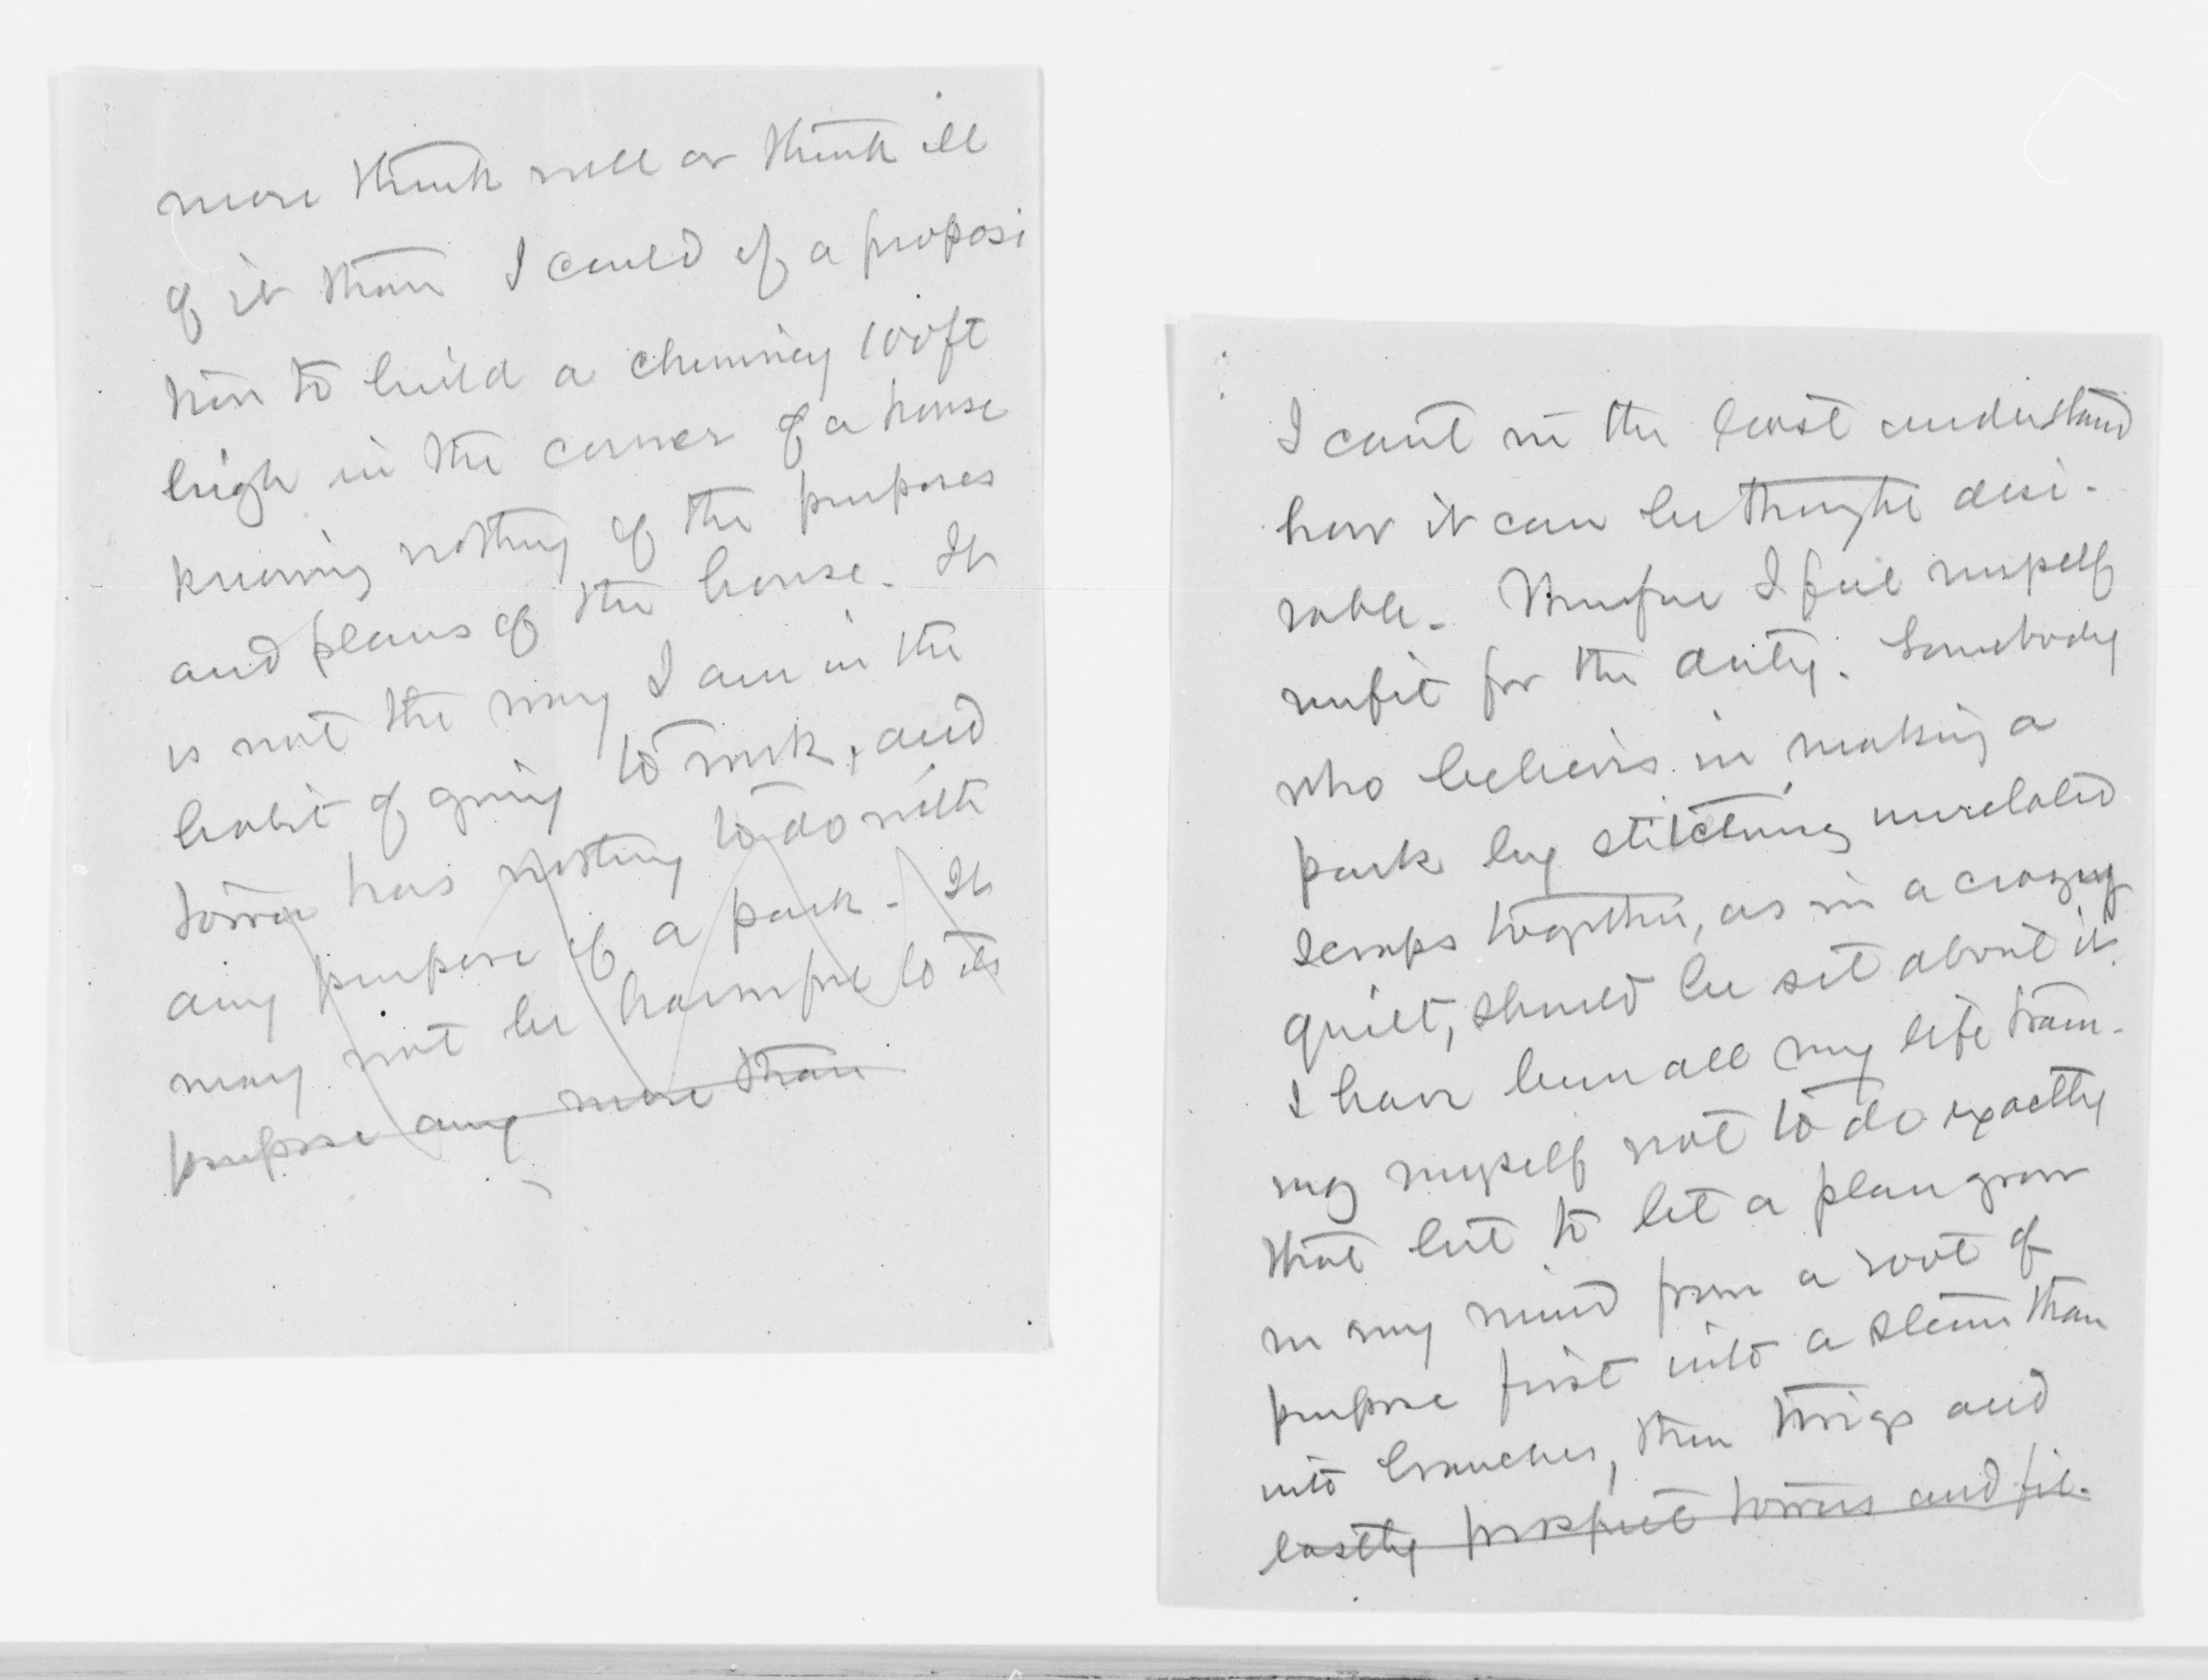 more think well or think ill
of it than I could of a proposi
tion to build a chimney 100ft
high in the corner of a house
knowing nothing of the purposes
and plans of the house. It
is not the way I am in the
habit of going to work, and
tower has nothing to do with
any purpose of a park. It
may not be harmful to its
purpose any more than
I cant in the least understand
how it can be thought desi-
rable. Therefore I feel myself
unfit for the duty. Somebody
who believes in making a
park by stitching unrelated
scraps together, as in a crazy
quilt, should be set about it.
I have been all my life train-
ing myself not to do exactly
that but to let a plan grow
in my mind from a root of
purpose first into a stem than
into branches, then twigs and
lastly prospect towers and fil-